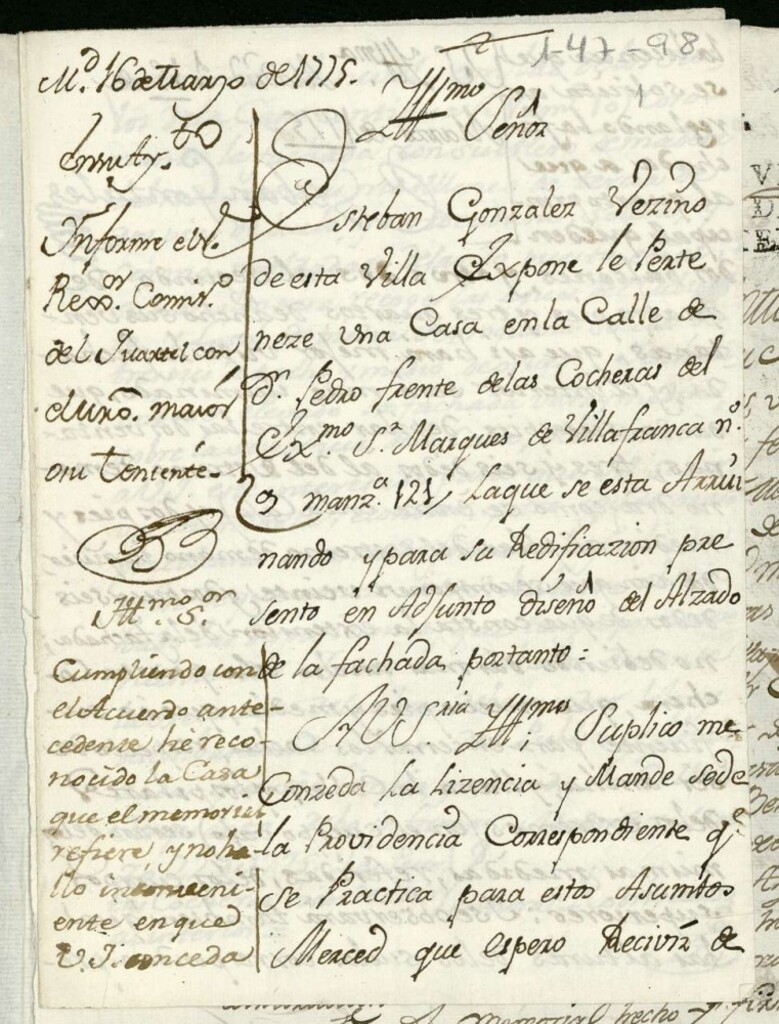 1-47-98
1
M.d 16 de Marzo de 1775.
Illmo
Señor
En Aytto
Informe el S.
Rexor. Comiso.
del Quartel con
el Mro. maior
o su Teniente
Esteban Gonzalez Vezino
de esta Villa Expone le Perte
neze una Casa en la Calle de
Dn. Pedro frente de las Cocheras del
Exmo. Sr. Marques de Villafranca no.
9 manza. 121, la que se esta Arrui
nando y para su Redificazion pre
sento en Adjunto diseño del Alzado
de la fachada, portanto:
A V Sria Illma; Suplico me
Conzeda la Lizencia y Mande se de
la Providencia Correspondiente qe
se Practica para estos Asumtos
Merced que espero Recivir de
Illmo. Sor.
Cumpliendo con
el Acuerdo ante-
cedente hé reco-
nocido la Casa
que el memorial
refiere y no ha-
llo inconveni-
ente en que
V. I. conceda
memorial hecho